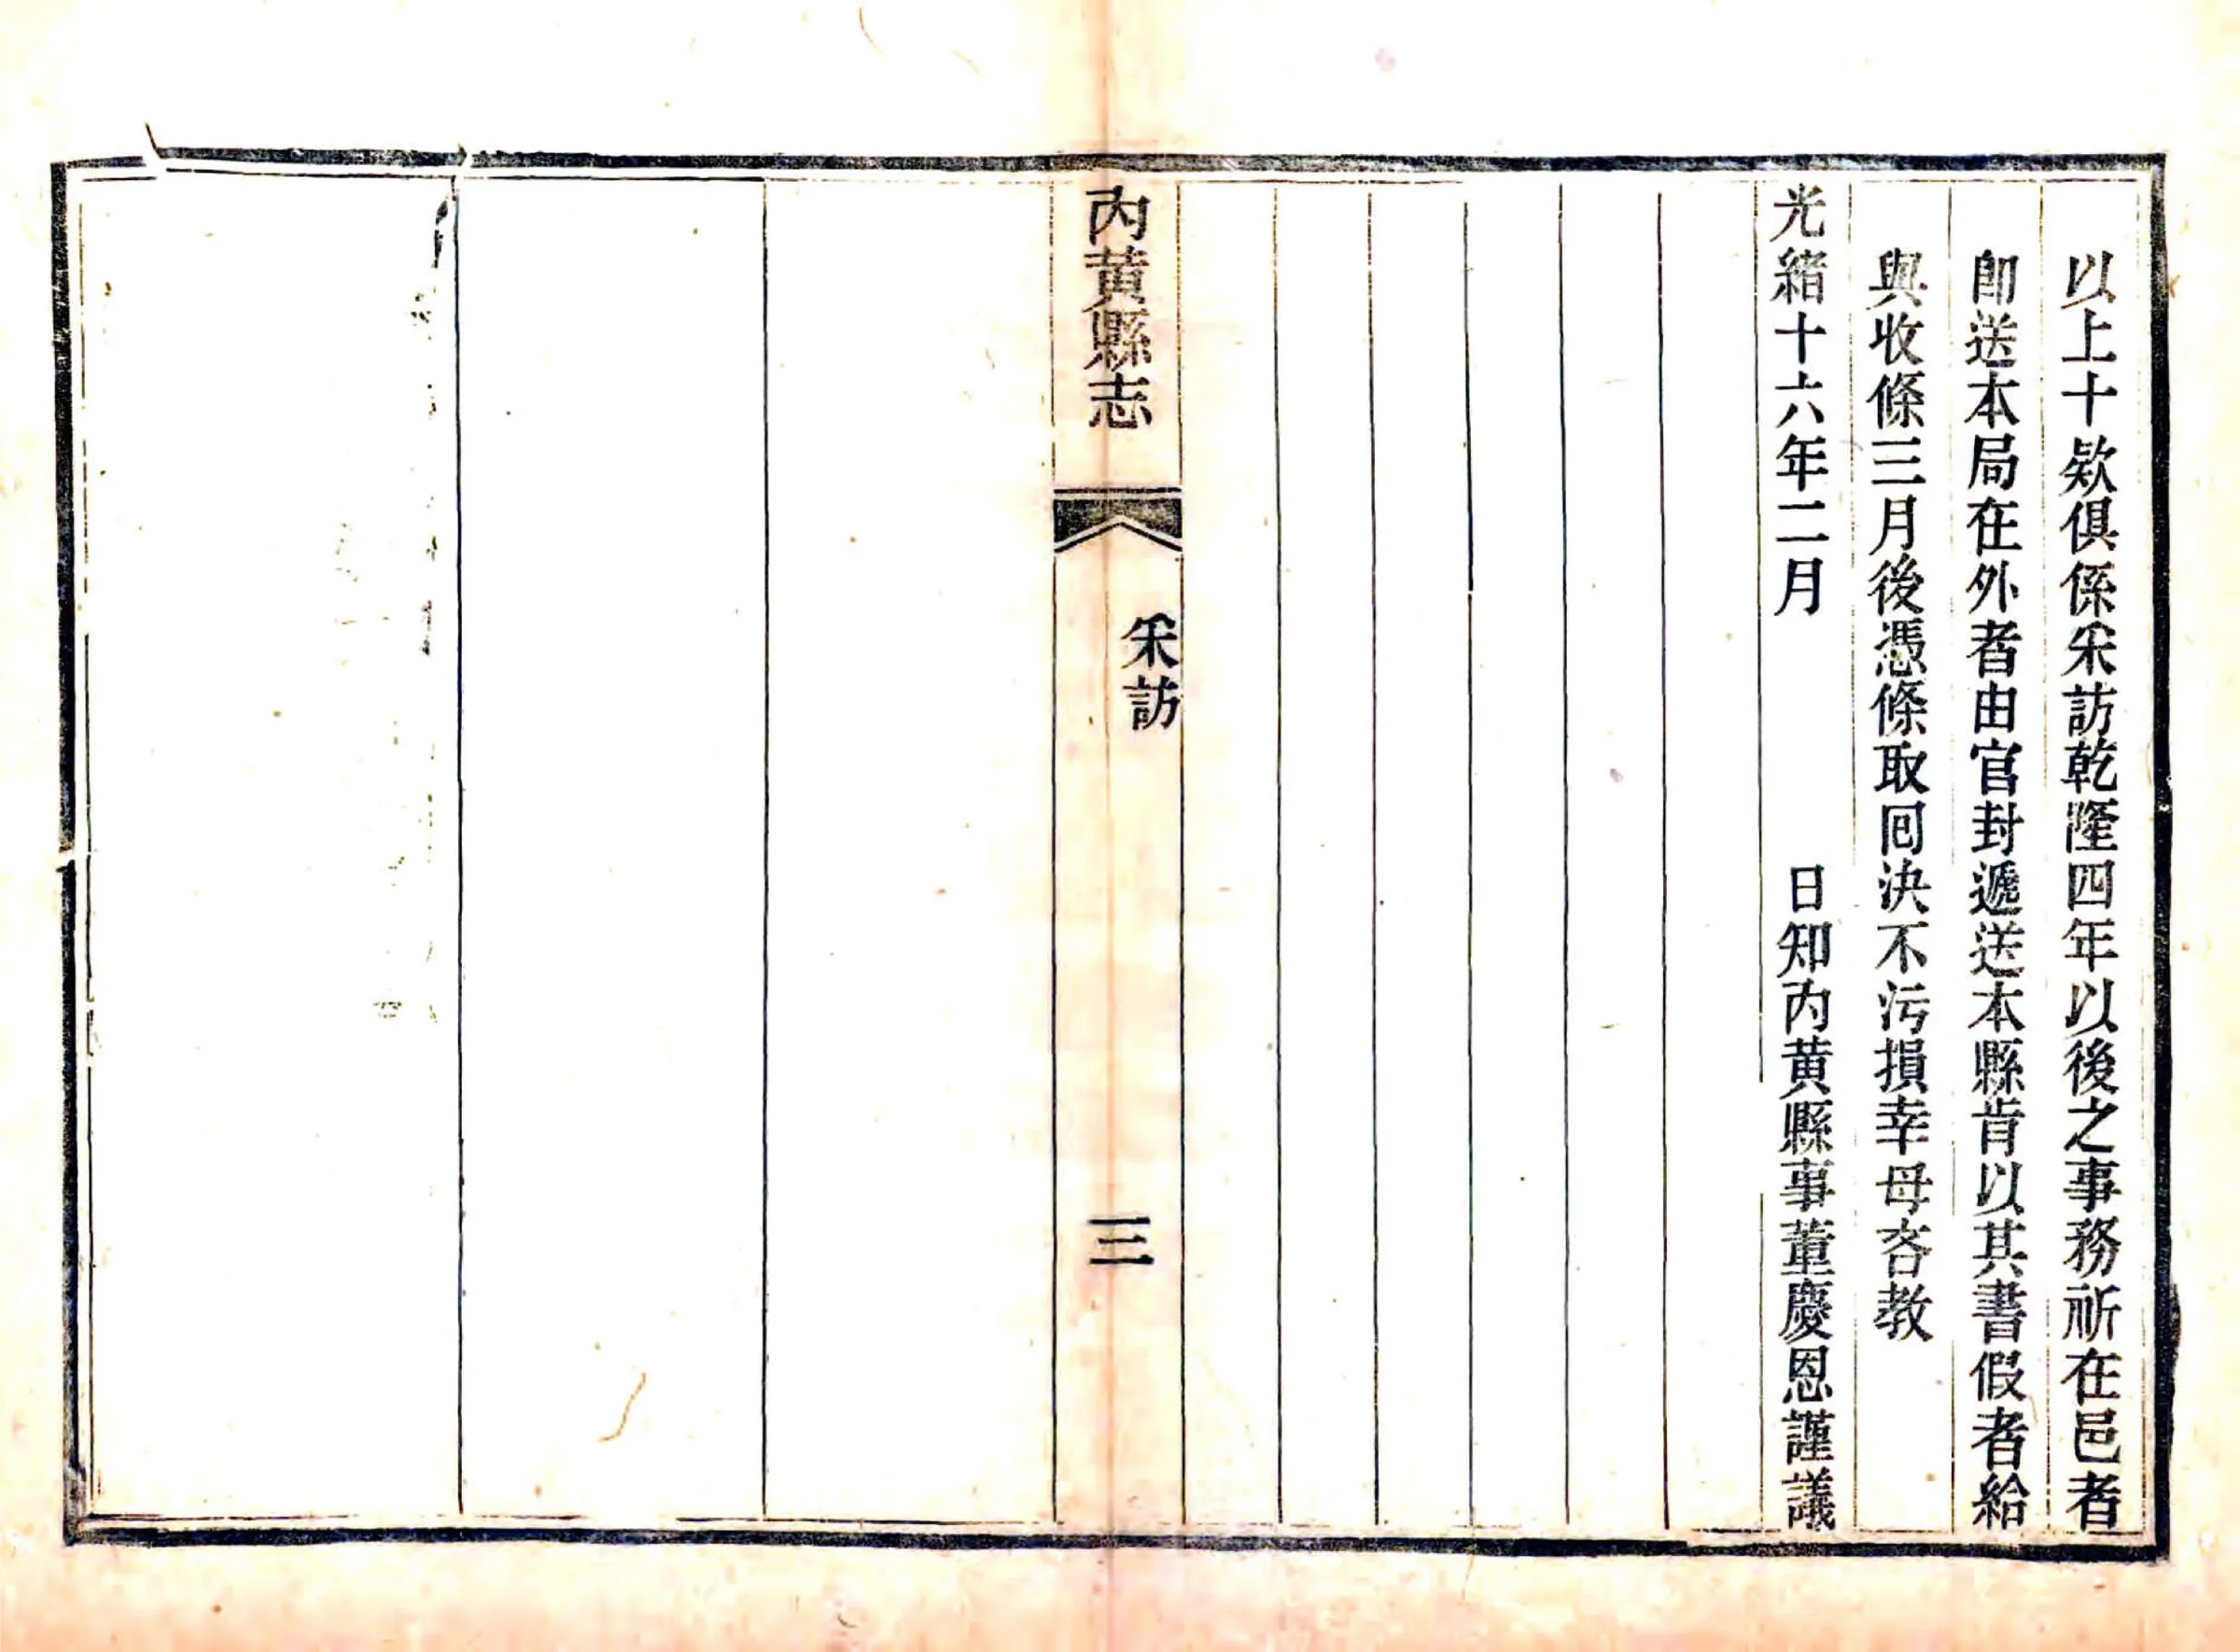 以上十欵俱係采訪乾隆四年以後之事務祈在邑者
卽送本局在外者由官封遞送本縣肯以其書假者給
與收條三月後憑條取囘決不污損幸母吝教
光緒十六年二月　　　　日知內黃縣事董慶恩謹議
內黃縣志
采訪
三